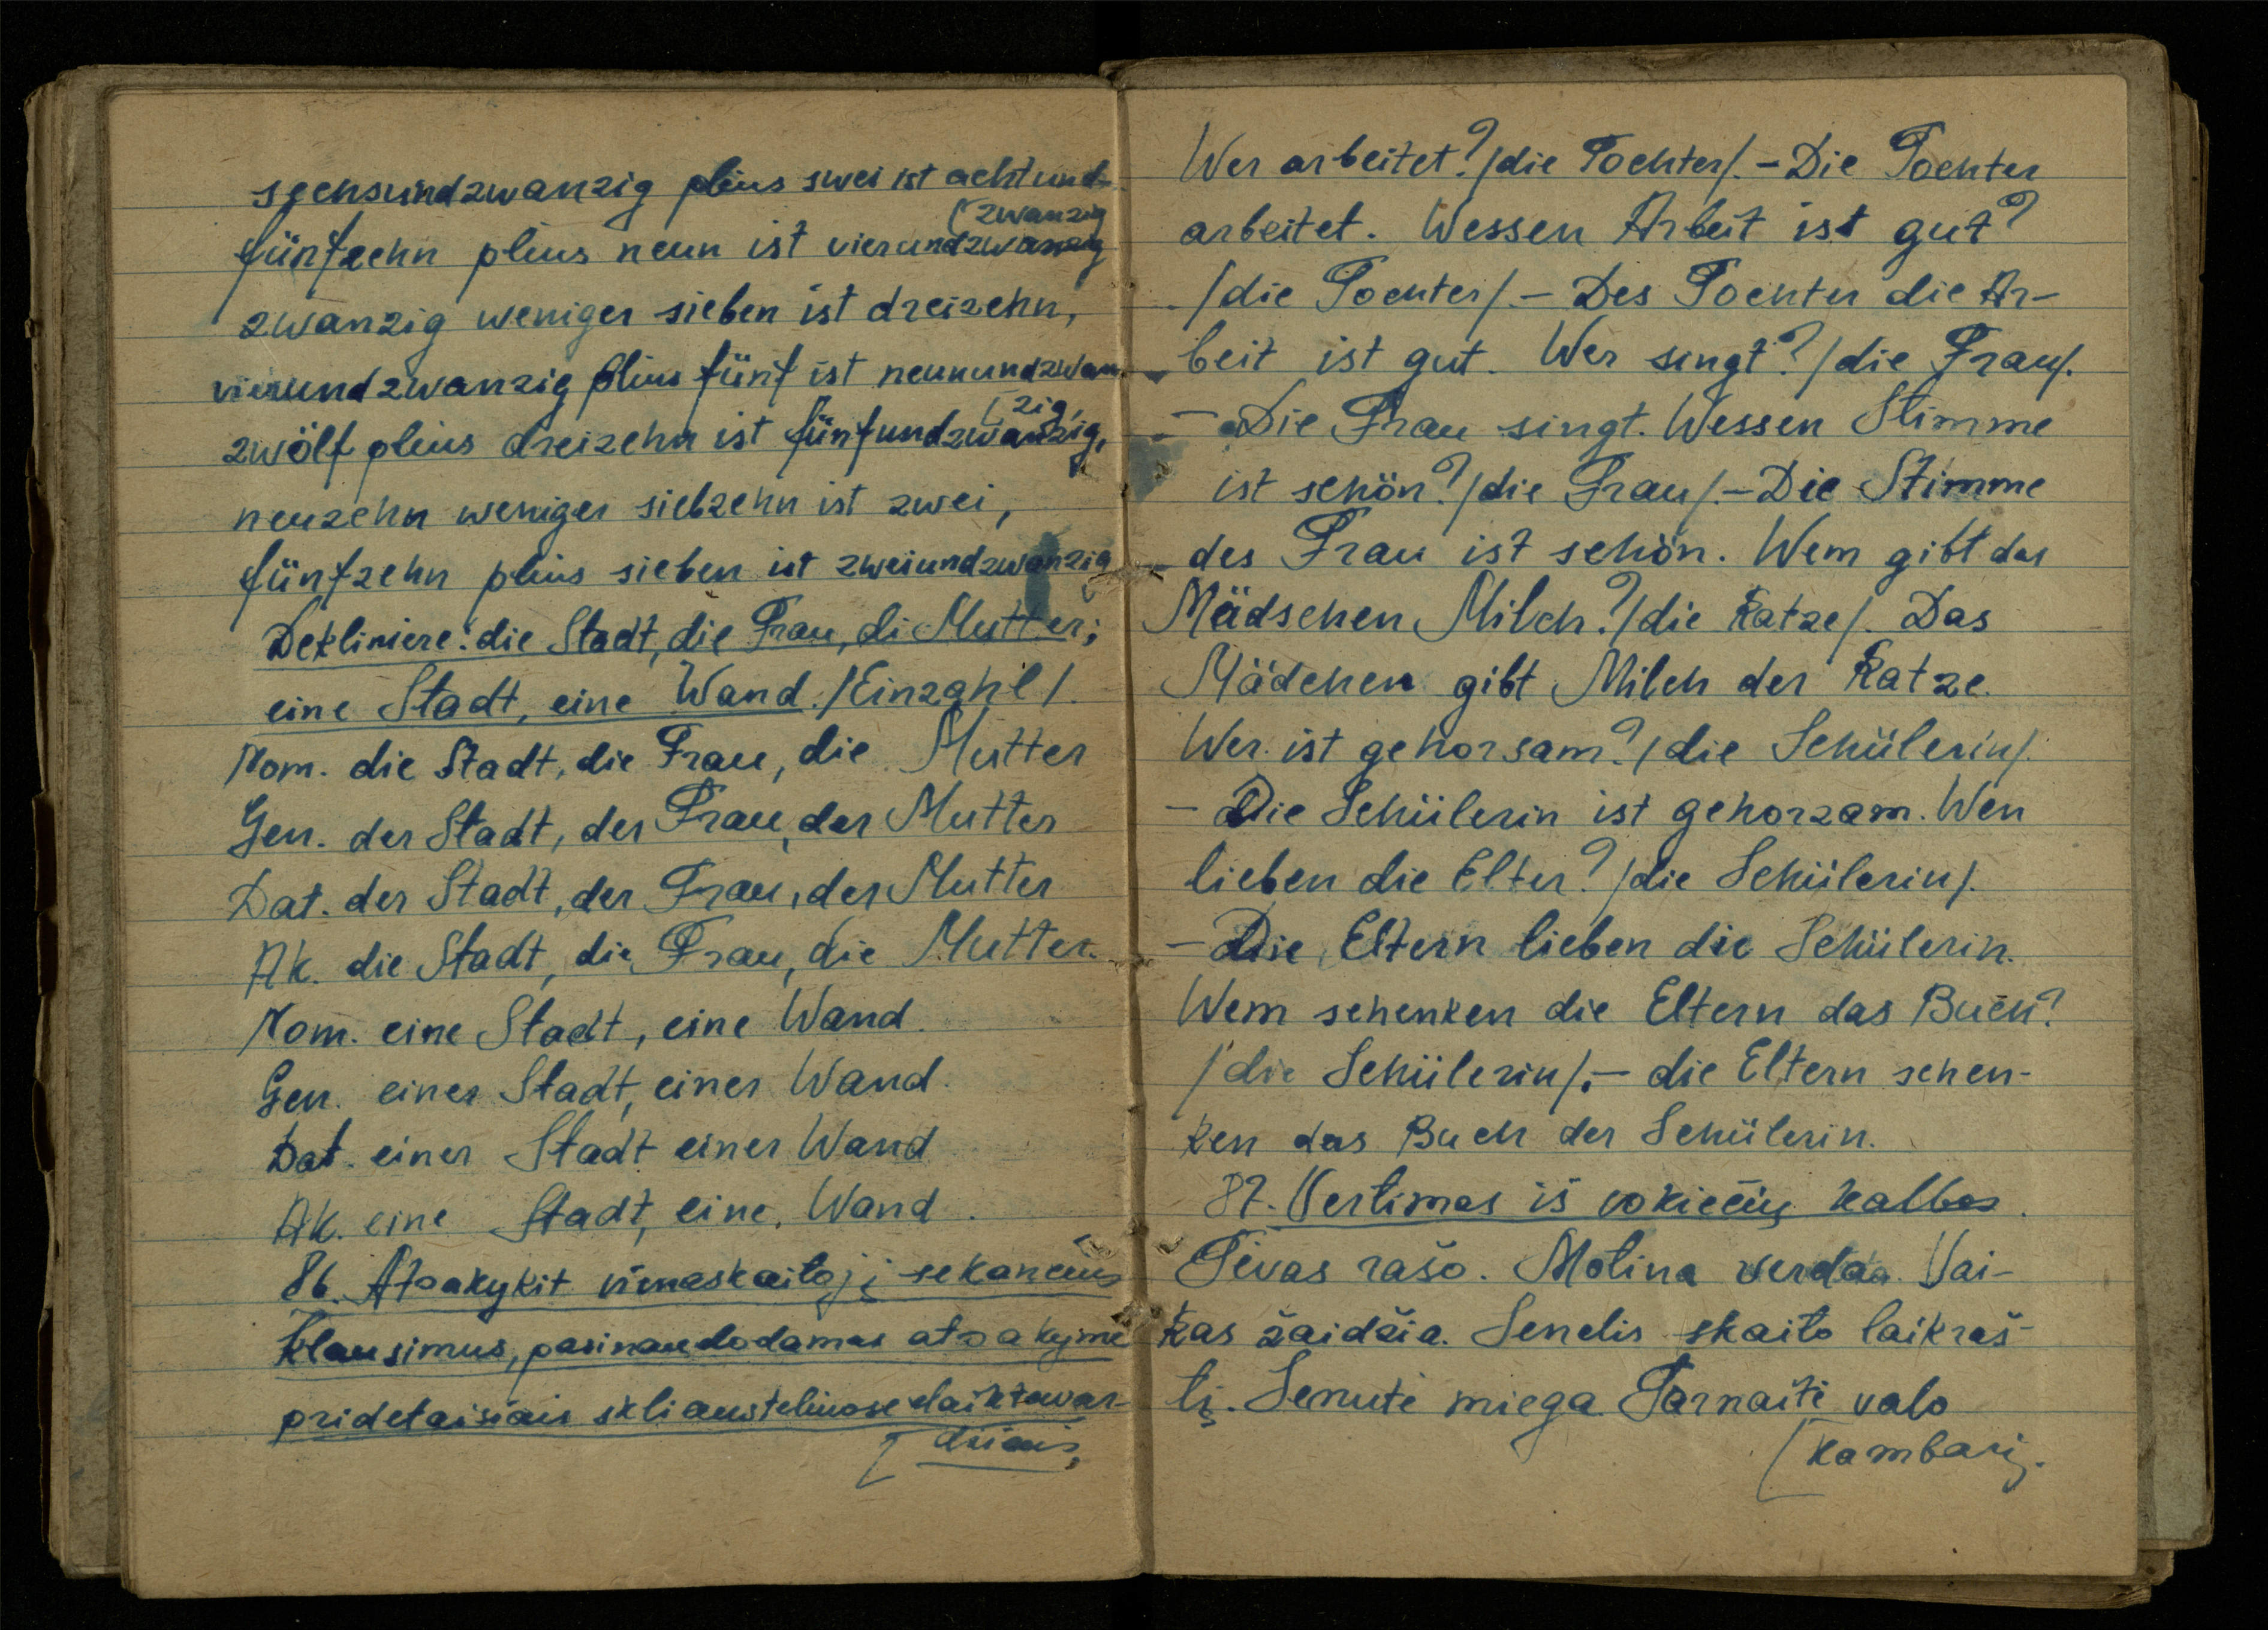 sechsundzwanzig plius swei ist achtund-
(zwanzig
fünfzehn plius neun ist vierundzwanzig
zwanzig weniger sieben ist dreizehn,
vierundzwanzig plius fünf ist neunundzwan
(zig,
zwölf plius dreizehn ist fünfundzwanzig,
neuzehn weniger siebzehn ist zwei,
fünfzehn plius sieben ist zweiundzwanzig
Dekliniere: die Stadt, die Frau, di Mutter;
eine Stadt, eine Wand. /Einzahl/.
Nom. die Stadt, die Frau, die Mutter
Gen. der Stadt, der Frau, der Mutter
Dat. der Stadt, der Frau, der Mutter
Ak. die Stadt, die Frau, die Mutter.
Nom. eine Stadt, eine Wand.
Gen. einer Stadt, einer Wand.
Dat. einer Stadt einer Wand
Ak. eine Stadt, eine, Wand.
86. Atsakykit vienaskaitoj į sekančius
klausimus, pasinaudodamas atsakyme
pridetaisiais skliausteliuose daiktavar-
[džiais,
Wer arbeitet? /die Tochter/. - Die Tochter
arbeitet. Wessen Arbeit ist gut?
/die Tochter/. - Des Tochter die Ar-
beit ist gut. Wer singt? /die Frau/.
- Die Frau singt. Wessen Stimme
ist schön? /die Frau/. - Die Stimme
des Frau ist schön. Wem gibt das
Mädschen Milch? /die Katze/. Das
Mädchen gibt Milch der Katze.
Wer ist gehorsam? /die Schülerin/.
- Die Schülerin ist gehorzam. Wen
lieben die Elter? /die Schülerin/.
- Die Eltern lieben die Schülerin.
Wem schenken die Eltern das Buch?
/die Schülerin/. - die Eltern schen-
ken das Buch der Schülerin.
87. Vertimas iš vokiečių kalbos.
Tėvas rašo. Motina verda. Vai-
kas žaidžia. Senelis skaito laikraš-
tį. Senutė miega. Tarnaitė valo
[kambarį.